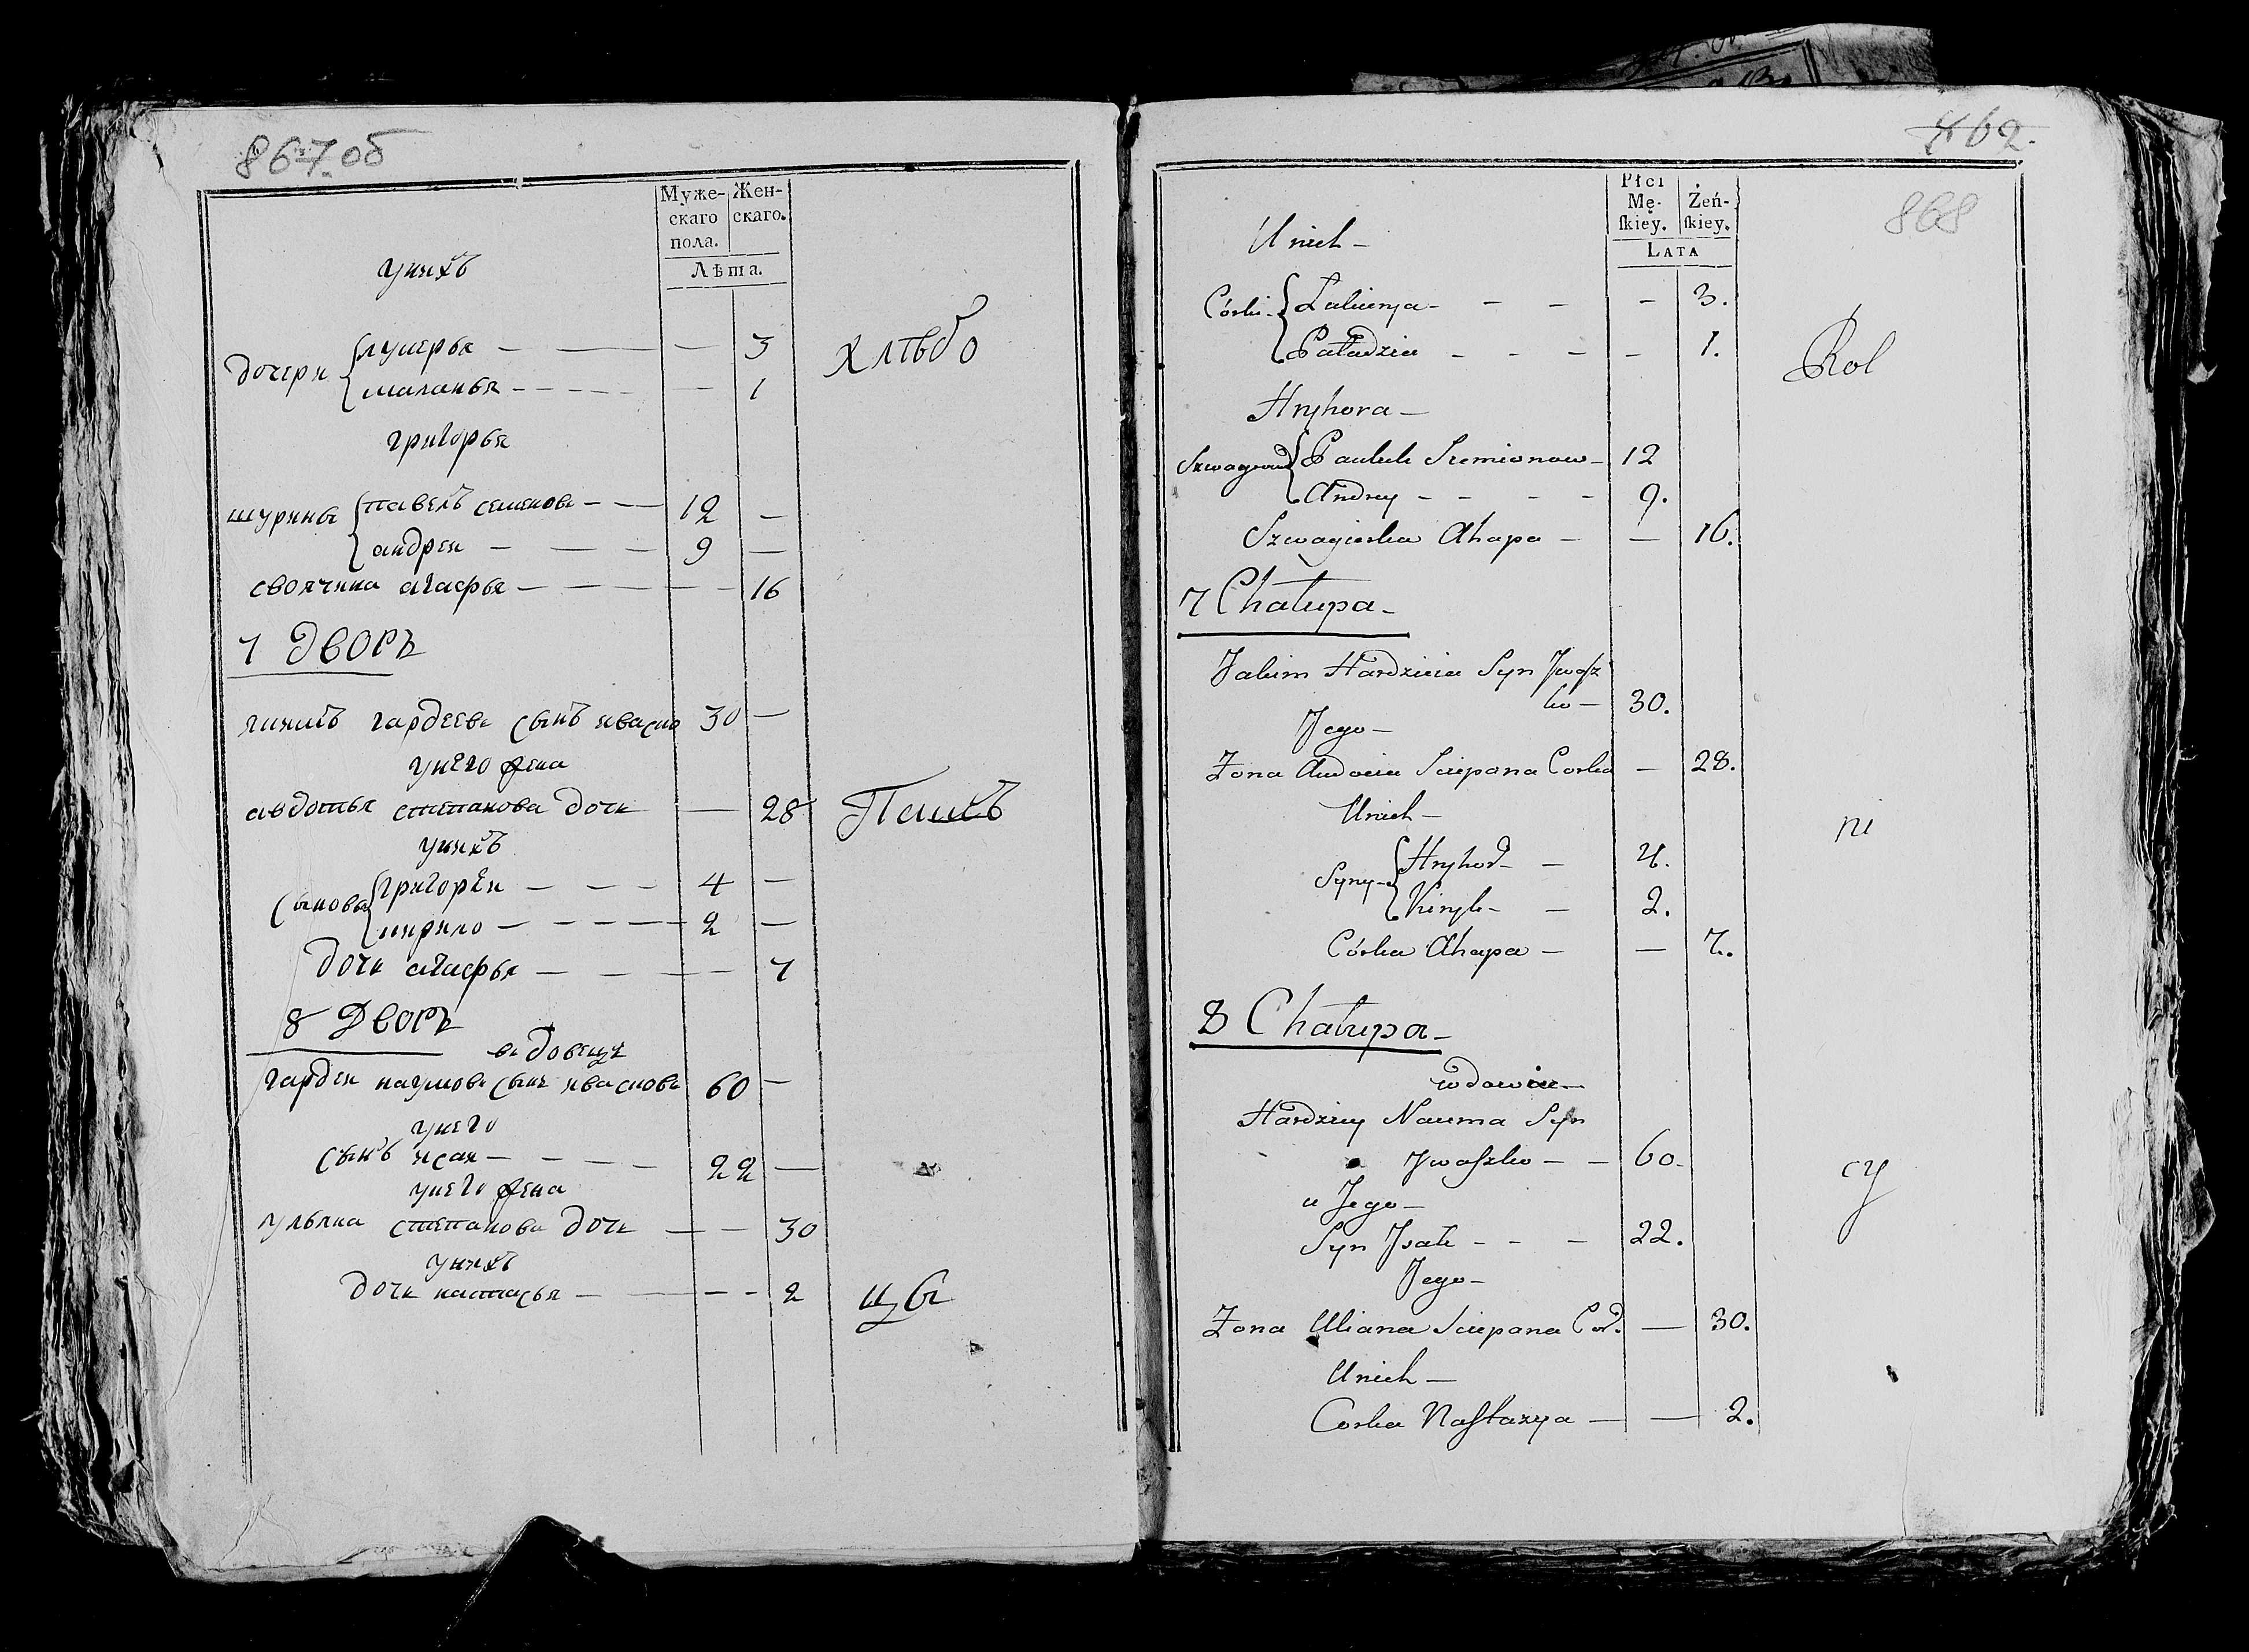 867.об
Муже-
скаго
пола.
Жен-
скаго.
Лѣта.
у них
дочери
лукерья — — — 3
маланья — — — 1
хлѣбо
григорья
шурины
павелъ семенова — 12 —
андреи — — — 9 —
своячина агафья — — — 16
7 дворъ
якимъ гардеева сынъ иваско 30 —
у него жена
авдотья степанова дочь — 28
Пашъ
у них
сыновья
григореи — — — 4 —
кирило — — — 2 —
дочь агафья — — — 7
8 дворъ
вдовецъ
гардеи наумова сынъ иваскова 60 —
у него
сынъ исаи — — — 22 —
у него жена
ульяна степанова дочь — — 30
у них
дочь настасья — — — 2
цы
862.
868
Płci
Mę-
skiey.
Żeń-
skiey.
LATA
U nich —
Córki
Łukierya — — — — 3.
Paładzia — — — — 1.
Rol
Hryhora —
Pauluk Siemionow — 12
Andrey — — — — 9.
Szwagierka Ahapa — — 16.
7 Chałupa —
Jakim Hardzieia Syn Jwasz
ko — 30.
Jego —
Żona Audocia Sciepana Corka — 28.
U nich —
Syny —
Hryhor — — 4.
Kiryk — — 2.
Córka Ahapa — — 7.
ni
8 Chałupa —
wdowiec —
Hardziey Nauma Syn
Jwaszko — — 60.
u Jego —
Syn Jsak — — — 22.
Jego —
Żona Uliana Sciepana Cor. — 30.
U nich —
Corka Nastazya — — 2.
cy